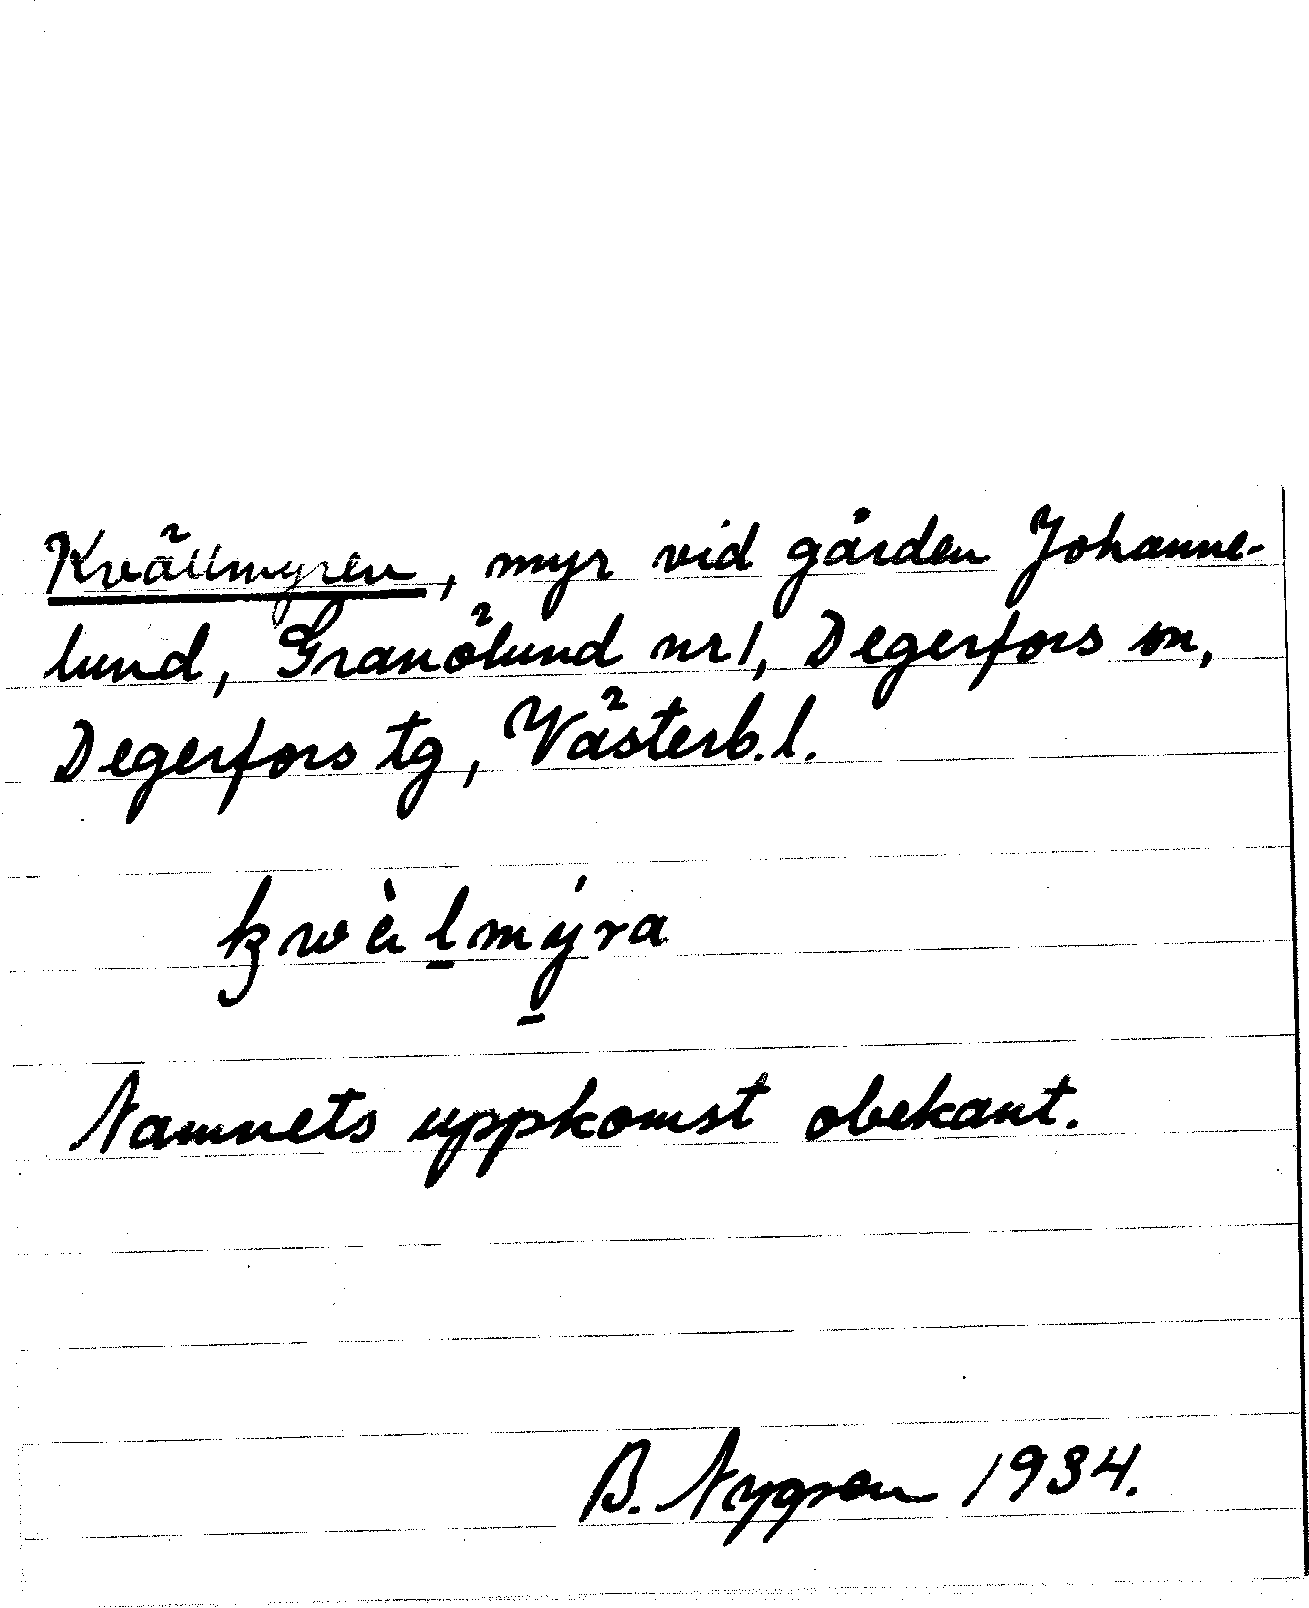 Kvällmyren, myr vid gården Johanne-
lund, Granölund nr 1, Degerfors sn,
Degerfors tg, Västerb. l.
kwèlmýra
Namnets uppkomst obekant.
B. Nygren 1934.